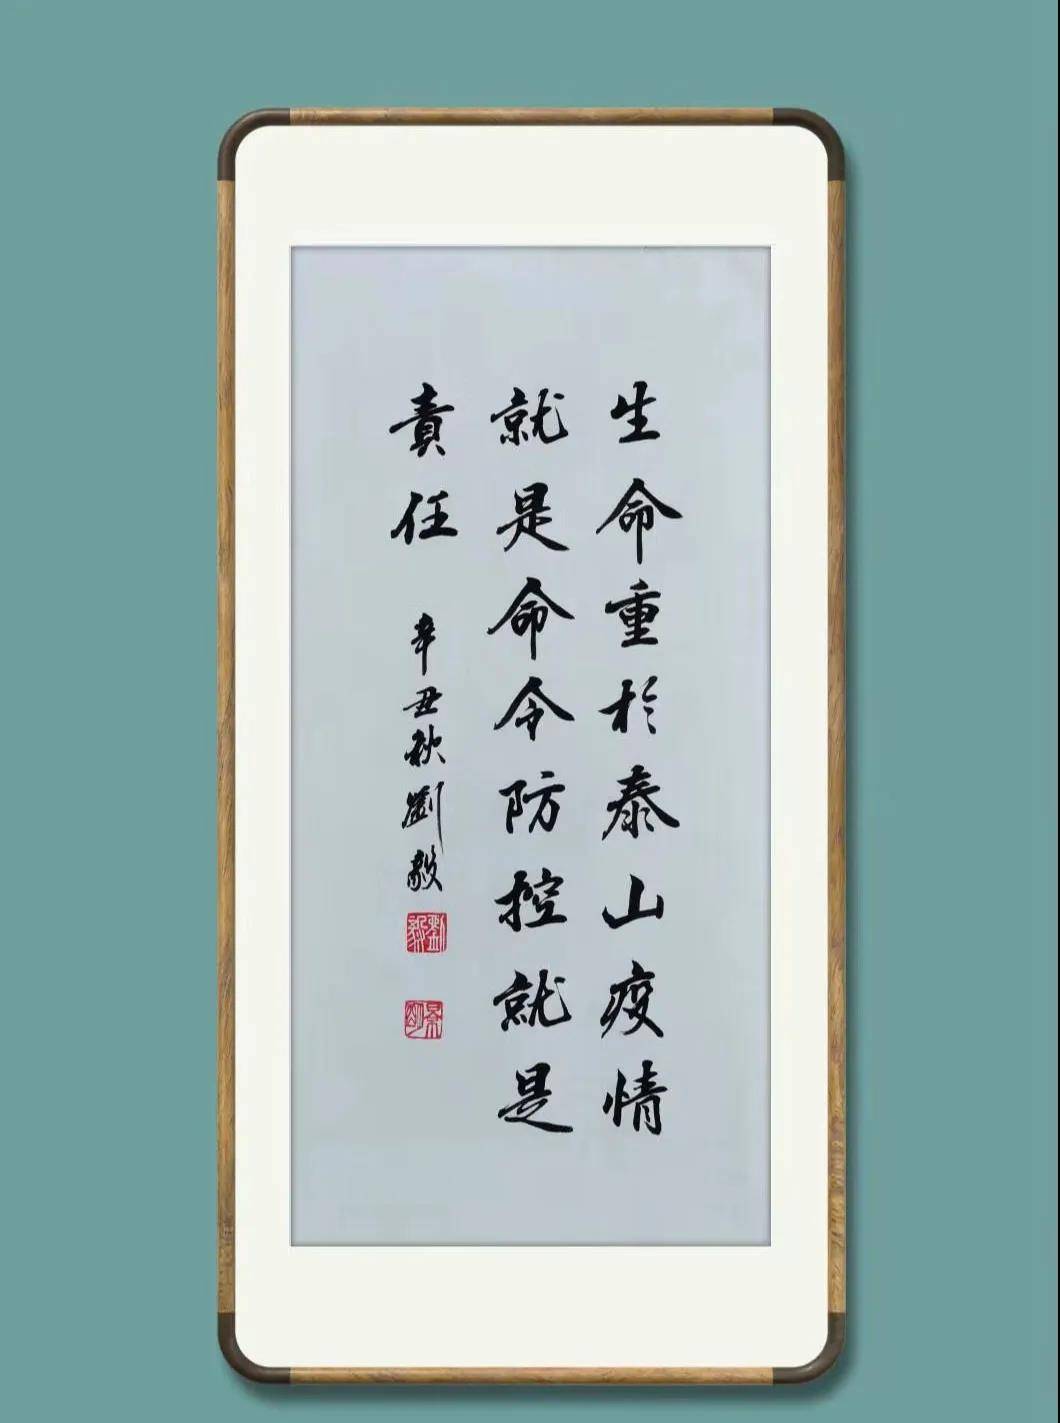 生命重於泰山疫情
就是命令防控就是
責任
辛丑秋劉毅